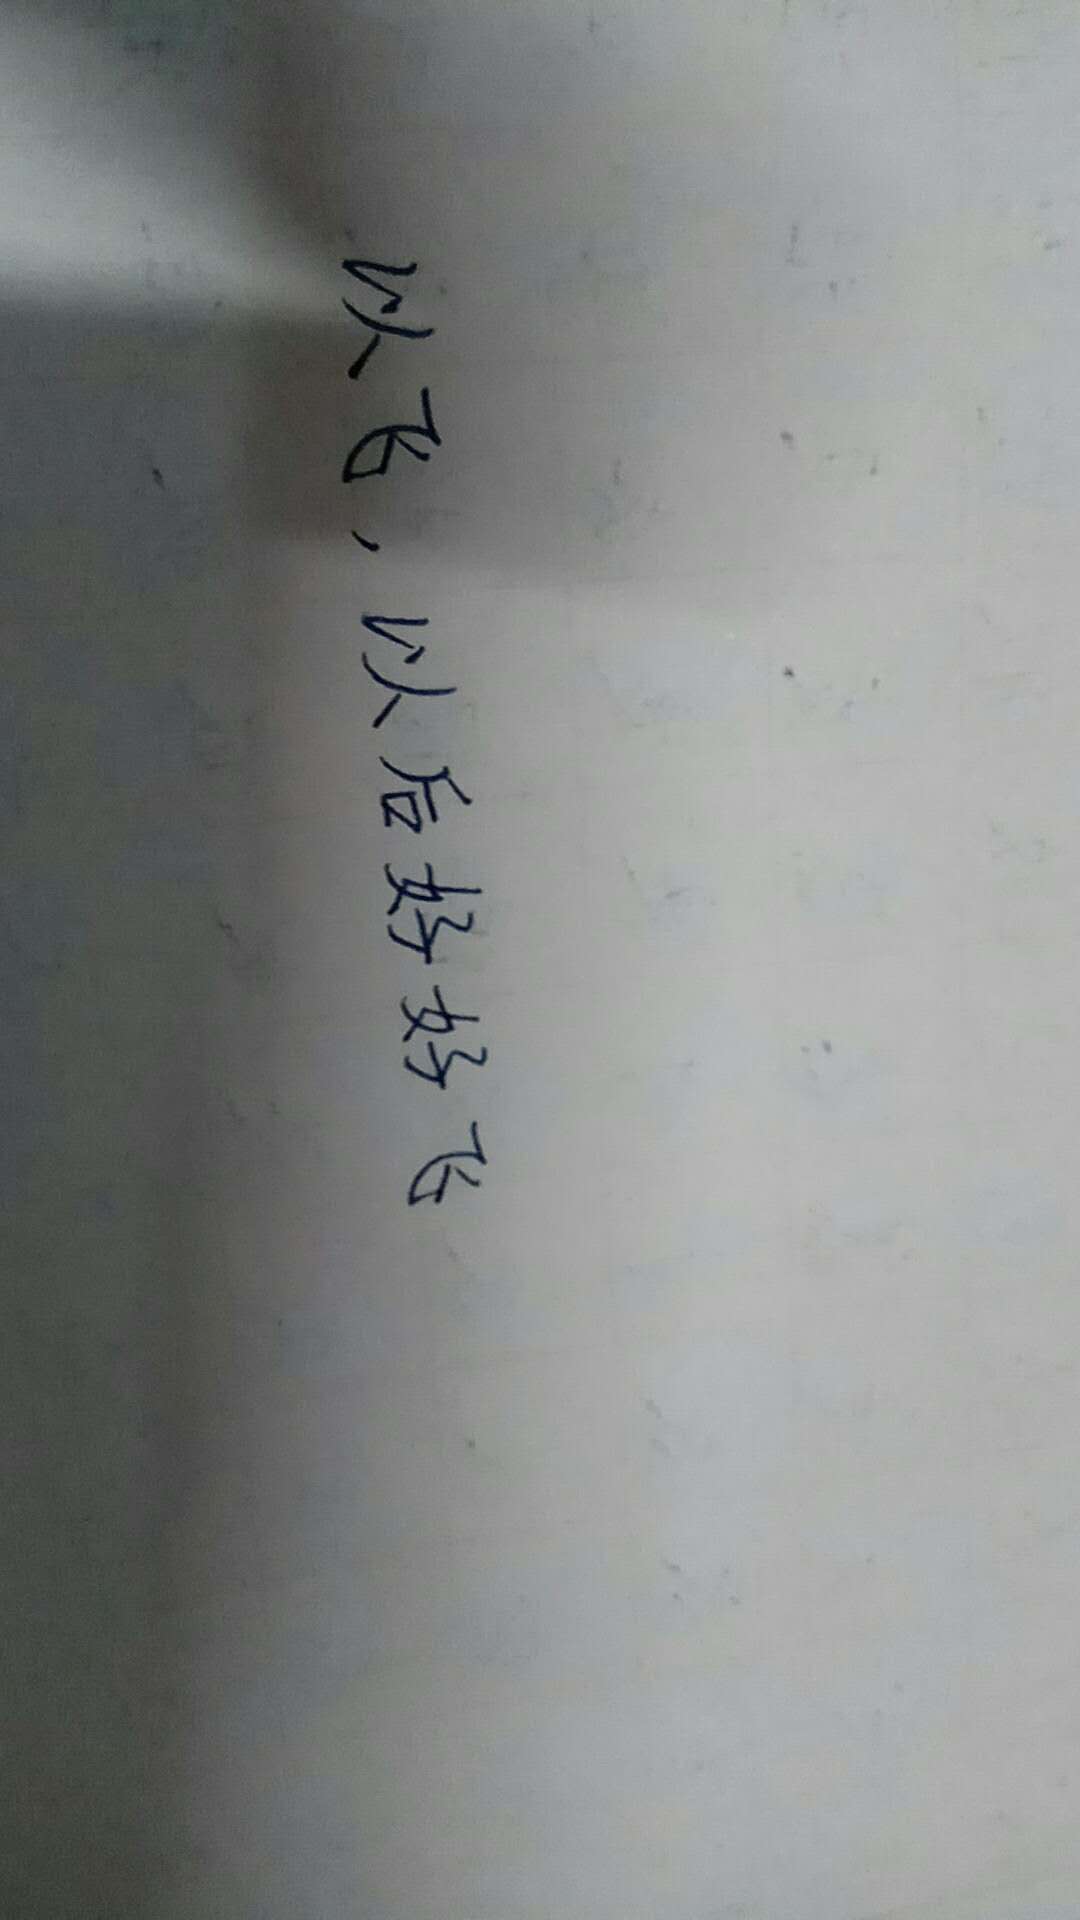 以飞，以后好好飞